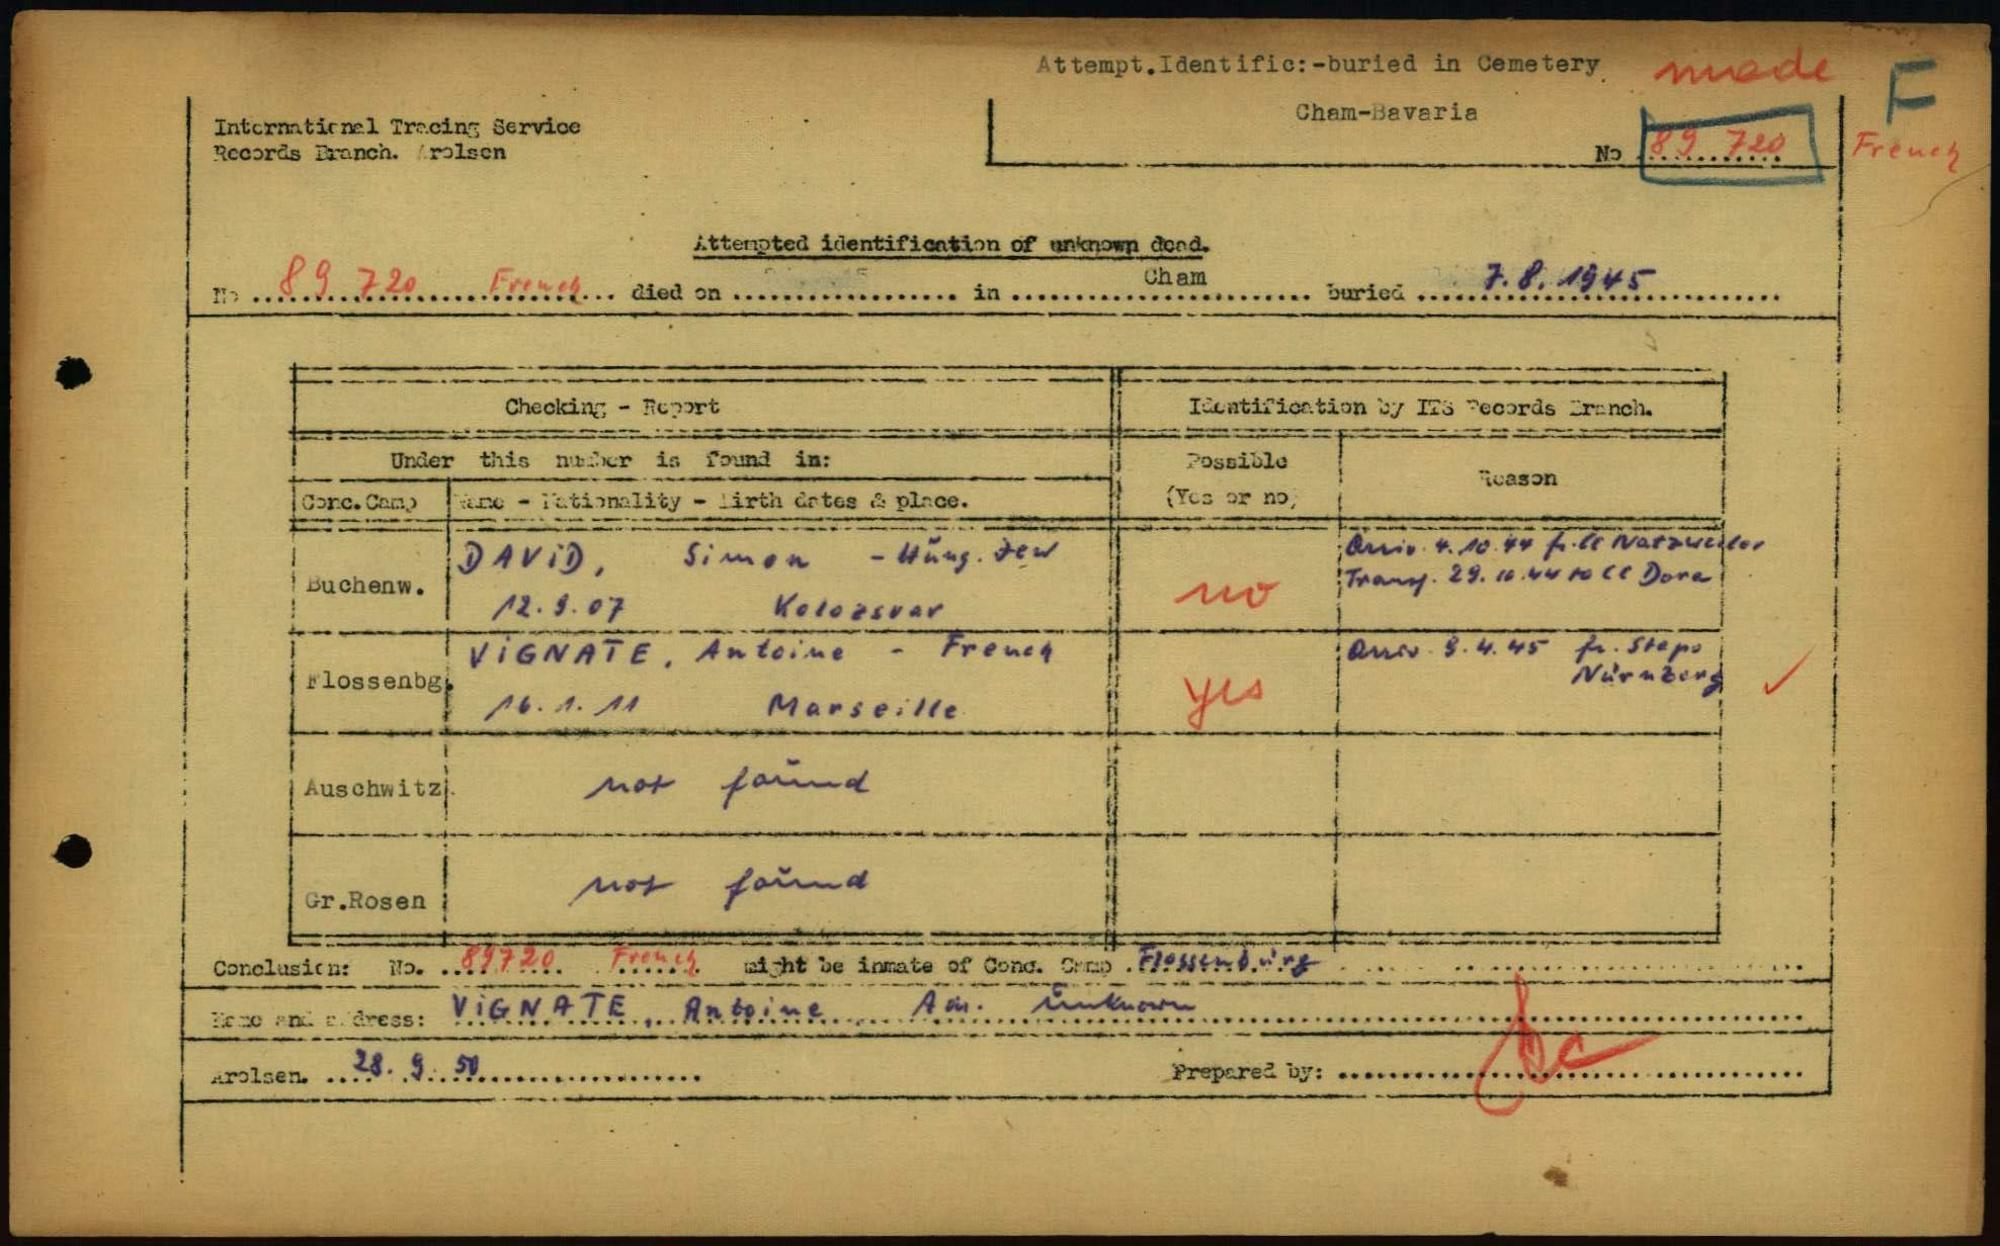 Attempt.Identific:-buried in Cemetery made F
Cham-Bavaria
International Tracing Service
Records Branch. Arolsen
No 89 720 French
Attempted identification of unknown dead.
No 89 720 French died on in Cham buried 7.8.1945
Checking - Report Identification by ITS Records Branch.
Under this number is found in: Possible (Yes or no) Reason
Conc.Camp Name - Nationality - Birth dates & place.
Buchenw. DAViD, Simon - Hŭng. Jew no Arriv. 4.10.44 fr. CC Natzweiler
12.9.07 Kolozsvar Transf. 29.10.44 to CC Dora
Flossenbg. ViGNATE, Antoine - French yes Arriv. 9.4.45 fr. Stapo
16.1.11 Marseille Nürnberg
Auschwitz. not foŭnd
Gr.Rosen not foŭnd
Conclusion: No. 89720 French might be inmate of Conc. Camp Flossenbürg
Name and address: ViGNATE, Antoine Adr. ŭnknown
Arolsen. 28. 9. 50 Prepared by: